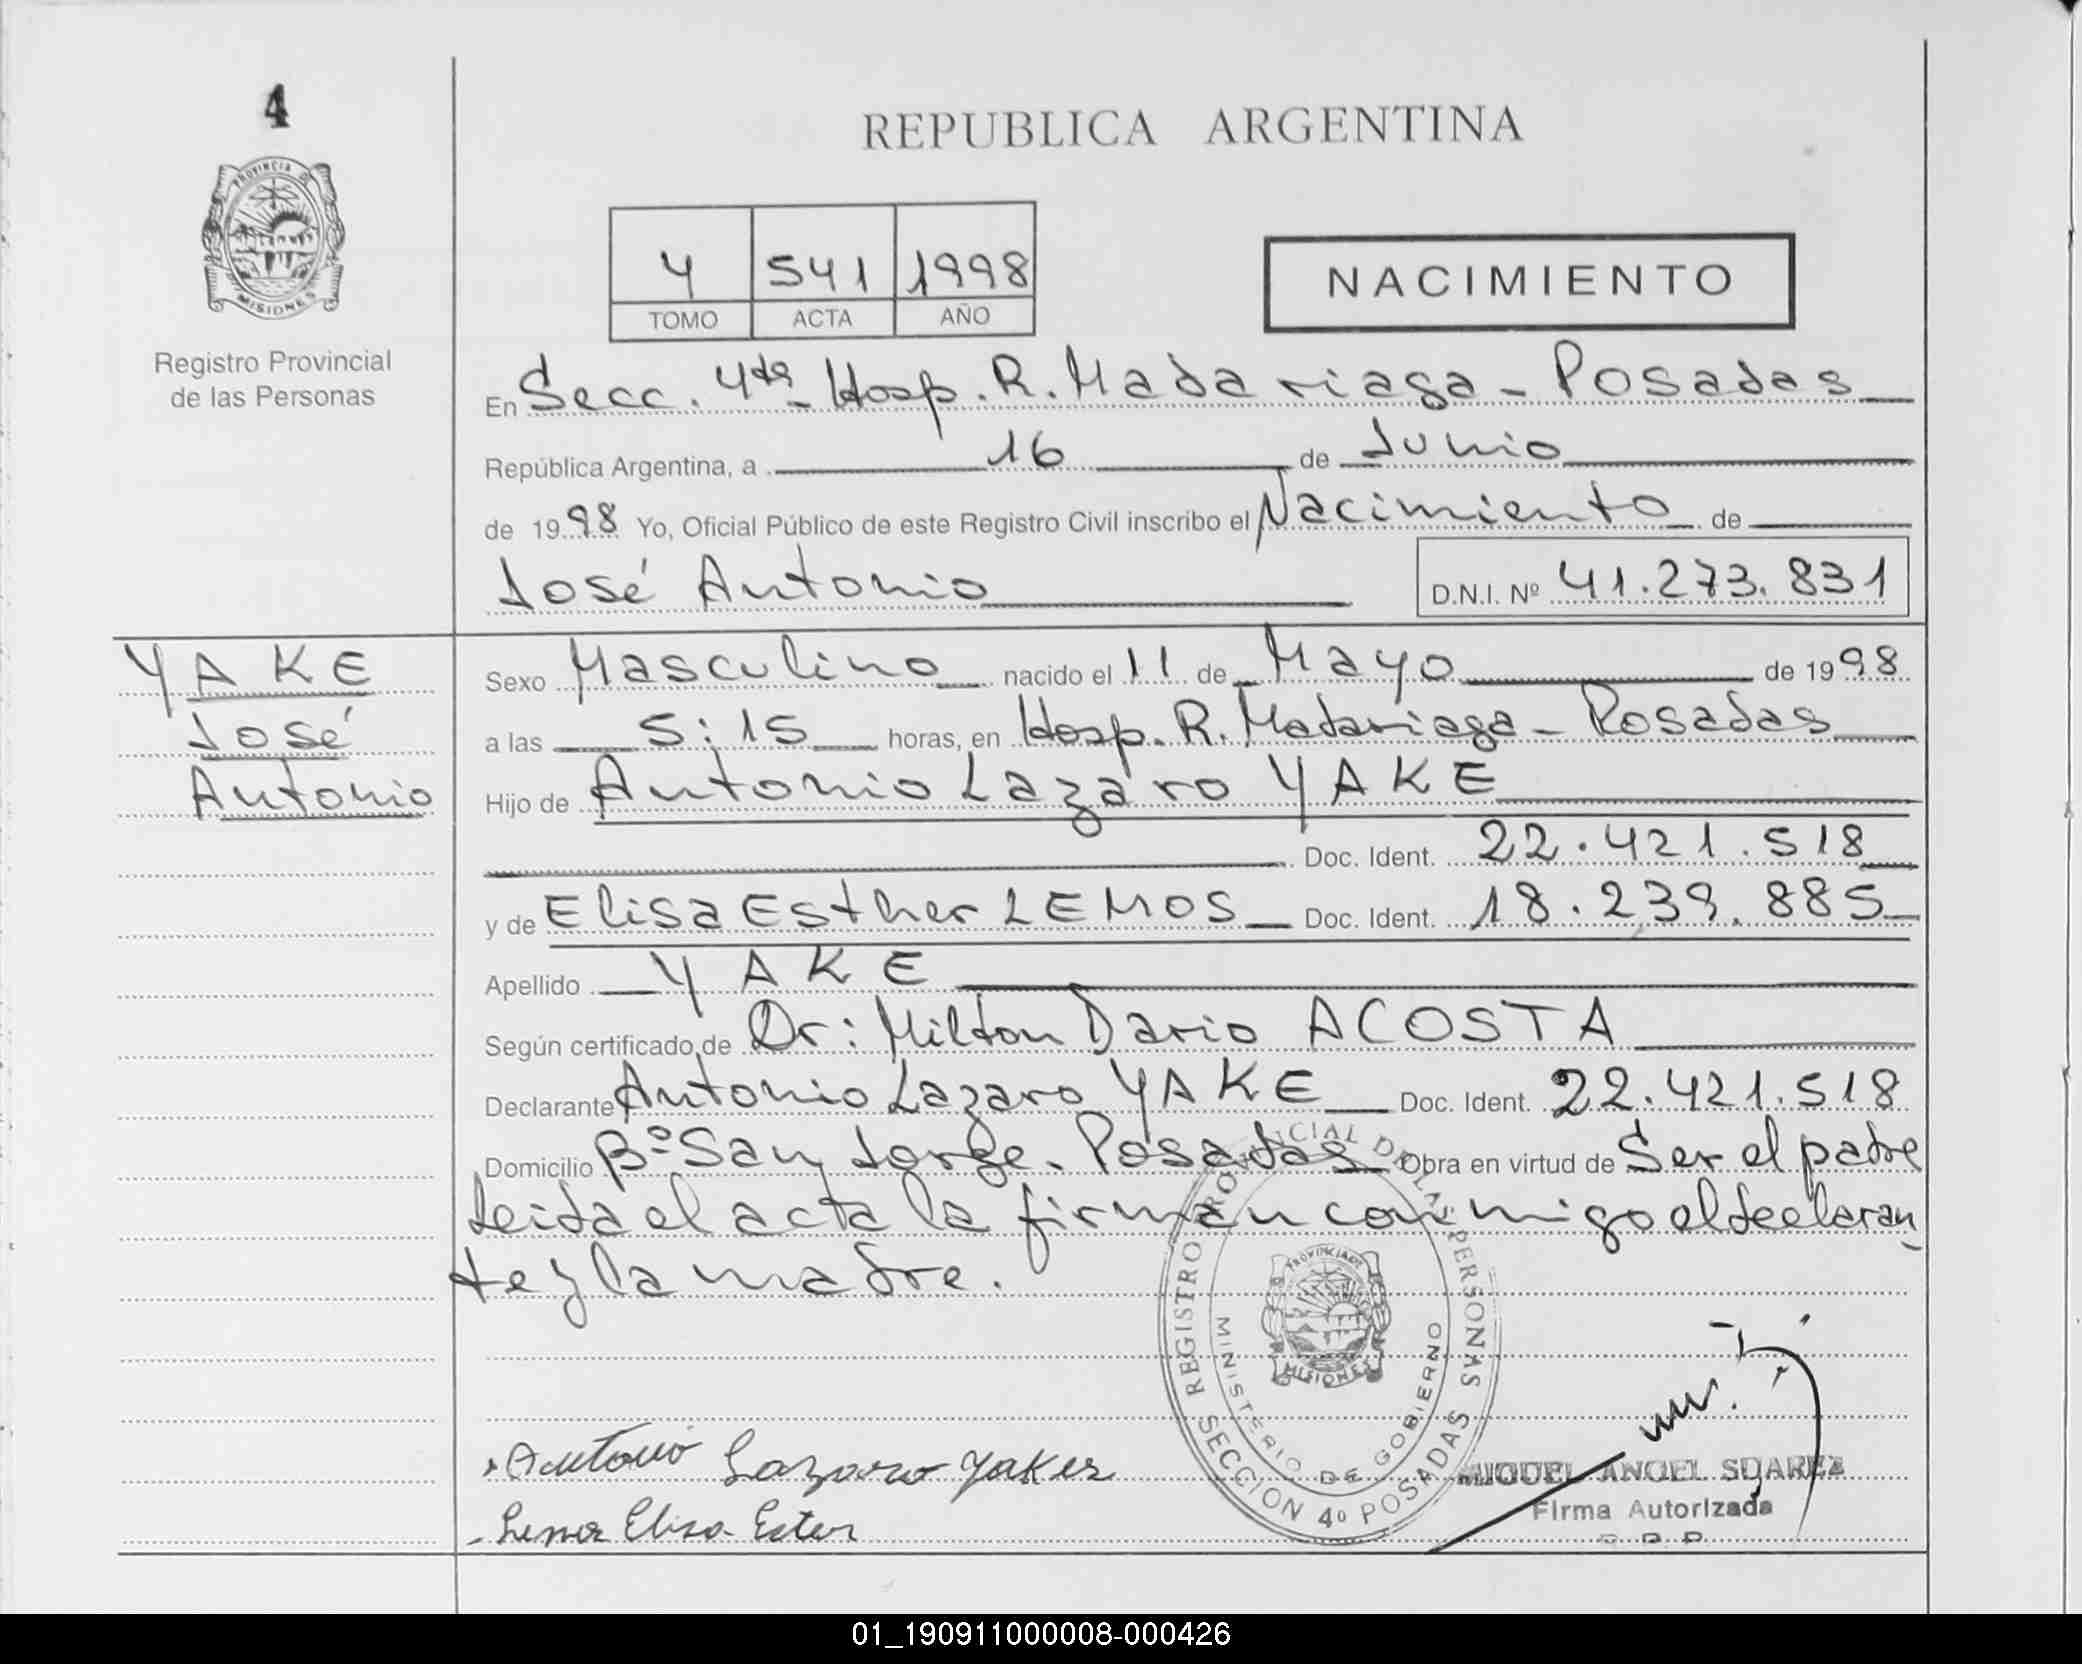 4
REPUBLICA ARGENTINA
PROVINCIA D
MISIONES
Registro Provincial
de las Personas
4 541 1998
TOMO ACTA AÑO
NACIMIENTO
En Secc. 4ta Hosp. R. Madariaga - Posadas
República Argentina, a 16 de Junio
de 1998 Yo, Oficial Público de este Registro Civil inscribo el Nacimiento de
José Antonio D.N.I. Nº 41.273.831
YAKE
José
Antonio
Sexo Masculino nacido el 11 de Mayo de 1998
a las 5:15 horas, en Hosp. R. Madariaga - Posadas
Hijo de Antonio Lazaro YAKE
Doc. Ident. 22.421.518
y de Elisa Esther LEMOS Doc. Ident. 18.239.885
Apellido YAKE
Según certificado de Dr: Milton Dario ACOSTA
Declarante Antonio Lazaro YAKE Doc. Ident. 22.421.518
Domicilio Bº San Jorge. Posadas Obra en virtud de Ser el padre
Leida el acta la firman conmigo el declaran
te y la madre.
REGISTRO PROVINCIAL DE LAS PERSONAS
SECCION 4º POSADAS
MINISTERIO DE GOBIERNO
PROVINCIA
MISIONES
Antonio Lazaro Yakes
Elisa Ester
MIGUEL ANGEL SUAREZ
Firma Autorizada
01_190911000008-000426